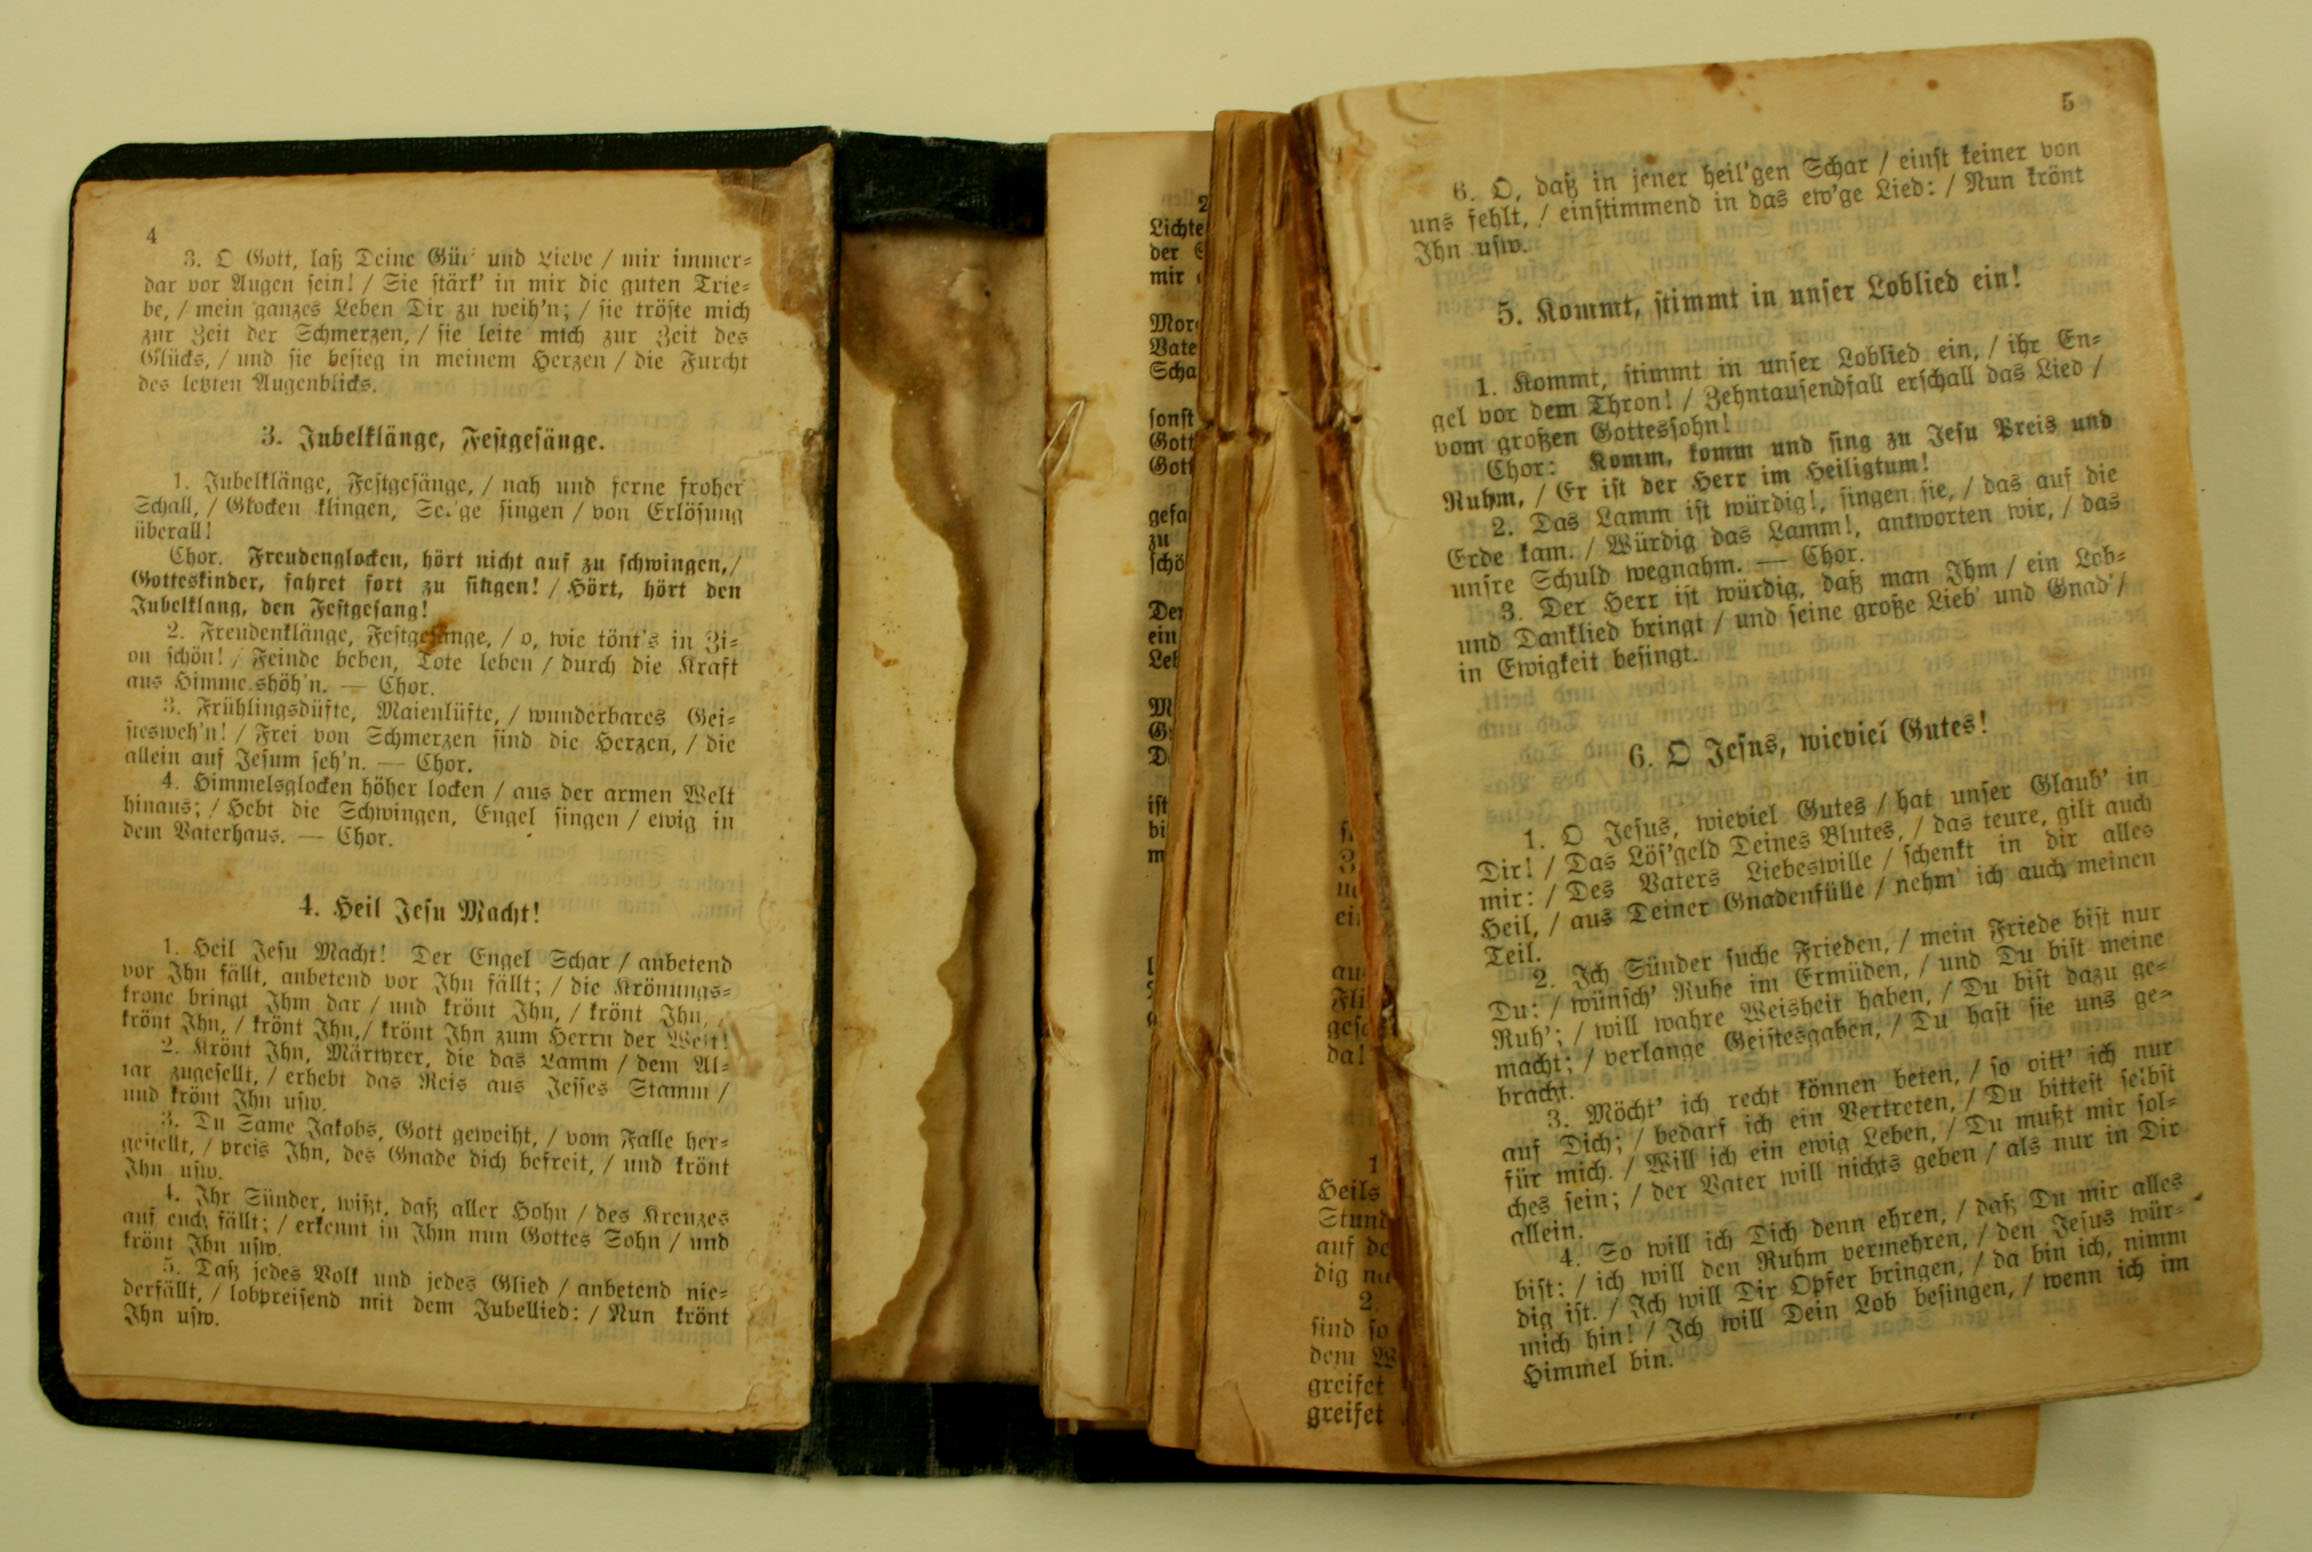 4
3. O Gott, laß Deine Güt' und Liebe / mir immer-
dar vor Augen sein! / Sie stärk' in mir die guten Trie-
be, / mein ganzes Leben Dir zu weih'n; / sie tröste mich
zur Zeit der Schmerzen, / sie leite mich zur Zeit des
Glücks, / und sie besieg in meinem Herzen / die Furcht
des letzten Augenblicks.
3. Jubelklänge, Festgesänge.
1. Jubelklänge, Festgesänge, / nah und ferne froher
Schall, / Glocken klingen, Sel'ge singen / von Erlösung
überall!
Chor. Freudenglocken, hört nicht auf zu schwingen, /
Gotteskinder, fahret fort zu singen! / Hört, hört den
Jubelklang, den Festgesang!
2. Freudenklänge, Festgesänge, / o, wie tönt's in Zi-
on schön! / Feinde beben, Tote leben / durch die Kraft
aus Himmelshöh'n. — Chor.
3. Frühlingsdüfte, Maienlüfte, / wunderbares Gei-
stesweh'n! / Frei von Schmerzen sind die Herzen, / die
allein auf Jesum seh'n. — Chor.
4. Himmelsglocken höher locken / aus der armen Welt
hinaus; / Hebt die Schwingen, Engel singen / ewig in
dem Vaterhaus. — Chor.
4. Heil Jesu Macht!
1. Heil Jesu Macht! Der Engel Schar / anbetend
vor Ihn fällt, anbetend vor Ihn fällt; / die Krönungs-
krone bringt Ihm dar / und krönt Ihn, / krönt Ihn, /
krönt Ihn, / krönt Ihn, / krönt Ihn zum Herrn der Welt!
2. Krönt Ihn, Märtyrer, die das Lamm / dem Al-
tar zugesellt, / erhebt das Reis aus Jesses Stamm /
und krönt Ihn usw.
3. Du Same Jakobs, Gott geweiht, / vom Falle her-
gestellt, / preis Ihn, des Gnade dich befreit, / und krönt
Ihn usw.
4. Ihr Sünder, wißt, daß aller Hohn / des Kreuzes
auf euch fällt; / erkennt in Ihm nun Gottes Sohn / und
krönt Ihn usw.
5. Daß jedes Volk und jedes Glied / anbetend nie-
derfällt, / lobpreisend mit dem Jubellied: / Nun krönt
Ihn usw.
2
Lichte
der
mir
Mor
Vate
Scha
sonst
Gott
Gott
gefa
zu
schö
Der
ein
Leb
ist
bi
m
au
Fli
gesc
da!
1
Heils
Stund
auf de
dig na
2.
sind so
dem W
greifet
greifet
5
6. O, daß in jener heil'gen Schar / einst keiner von
uns fehlt, / einstimmend in das ew'ge Lied: / Nun krönt
Ihn usw.
5. Kommt, stimmt in unser Loblied ein!
1. Kommt, stimmt in unser Loblied ein, / ihr En-
gel vor dem Thron! / Zehntausendfall erschall das Lied /
vom großen Gottessohn!
Chor: Komm, komm und sing zu Jesu Preis und
Ruhm, / Er ist der Herr im Heiligtum!
2. Das Lamm ist würdig!, singen sie, / das auf die
Erde kam. / Würdig das Lamm!, antworten wir, / das
unsre Schuld wegnahm. — Chor.
3. Der Herr ist würdig, daß man Ihm / ein Lob-
und Danklied bringt / und seine große Lieb' und Gnad' /
in Ewigkeit besingt.
6. O Jesus, wieviel Gutes!
1. O Jesus, wieviel Gutes / hat unser Glaub' in
Dir! / Das Lös'geld Deines Blutes, / das teure, gilt auch
mir: / Des Vaters Liebeswille / schenkt in dir alles
Heil, / aus Deiner Gnadenfülle / nehm' ich auch meinen
Teil.
2. Ich Sünder suche Frieden, / mein Friede bist nur
Du: / wünsch' Ruhe im Ermüden, / und Du bist meine
Ruh'; / will wahre Weisheit haben, / Du bist dazu ge-
macht; / verlange Geistesgaben, / Du hast sie uns ge-
bracht.
3. Möcht' ich recht können beten, / so bitt' ich nur
auf Dich; / bedarf ich ein Vertreten, / Du bittest selbst
für mich. / Will ich ein ewig Leben, / Du mußt mir sol-
ches sein; / der Vater will nichts geben / als nur in Dir
allein.
4. So will ich Dich denn ehren, / daß Du mir alles
bist: / ich will den Ruhm vermehren, / den Jesus wür-
dig ist. / Ich will Dir Opfer bringen, / da bin ich, nimm
mich hin! / Ich will Dein Lob besingen, / wenn ich im
Himmel bin.